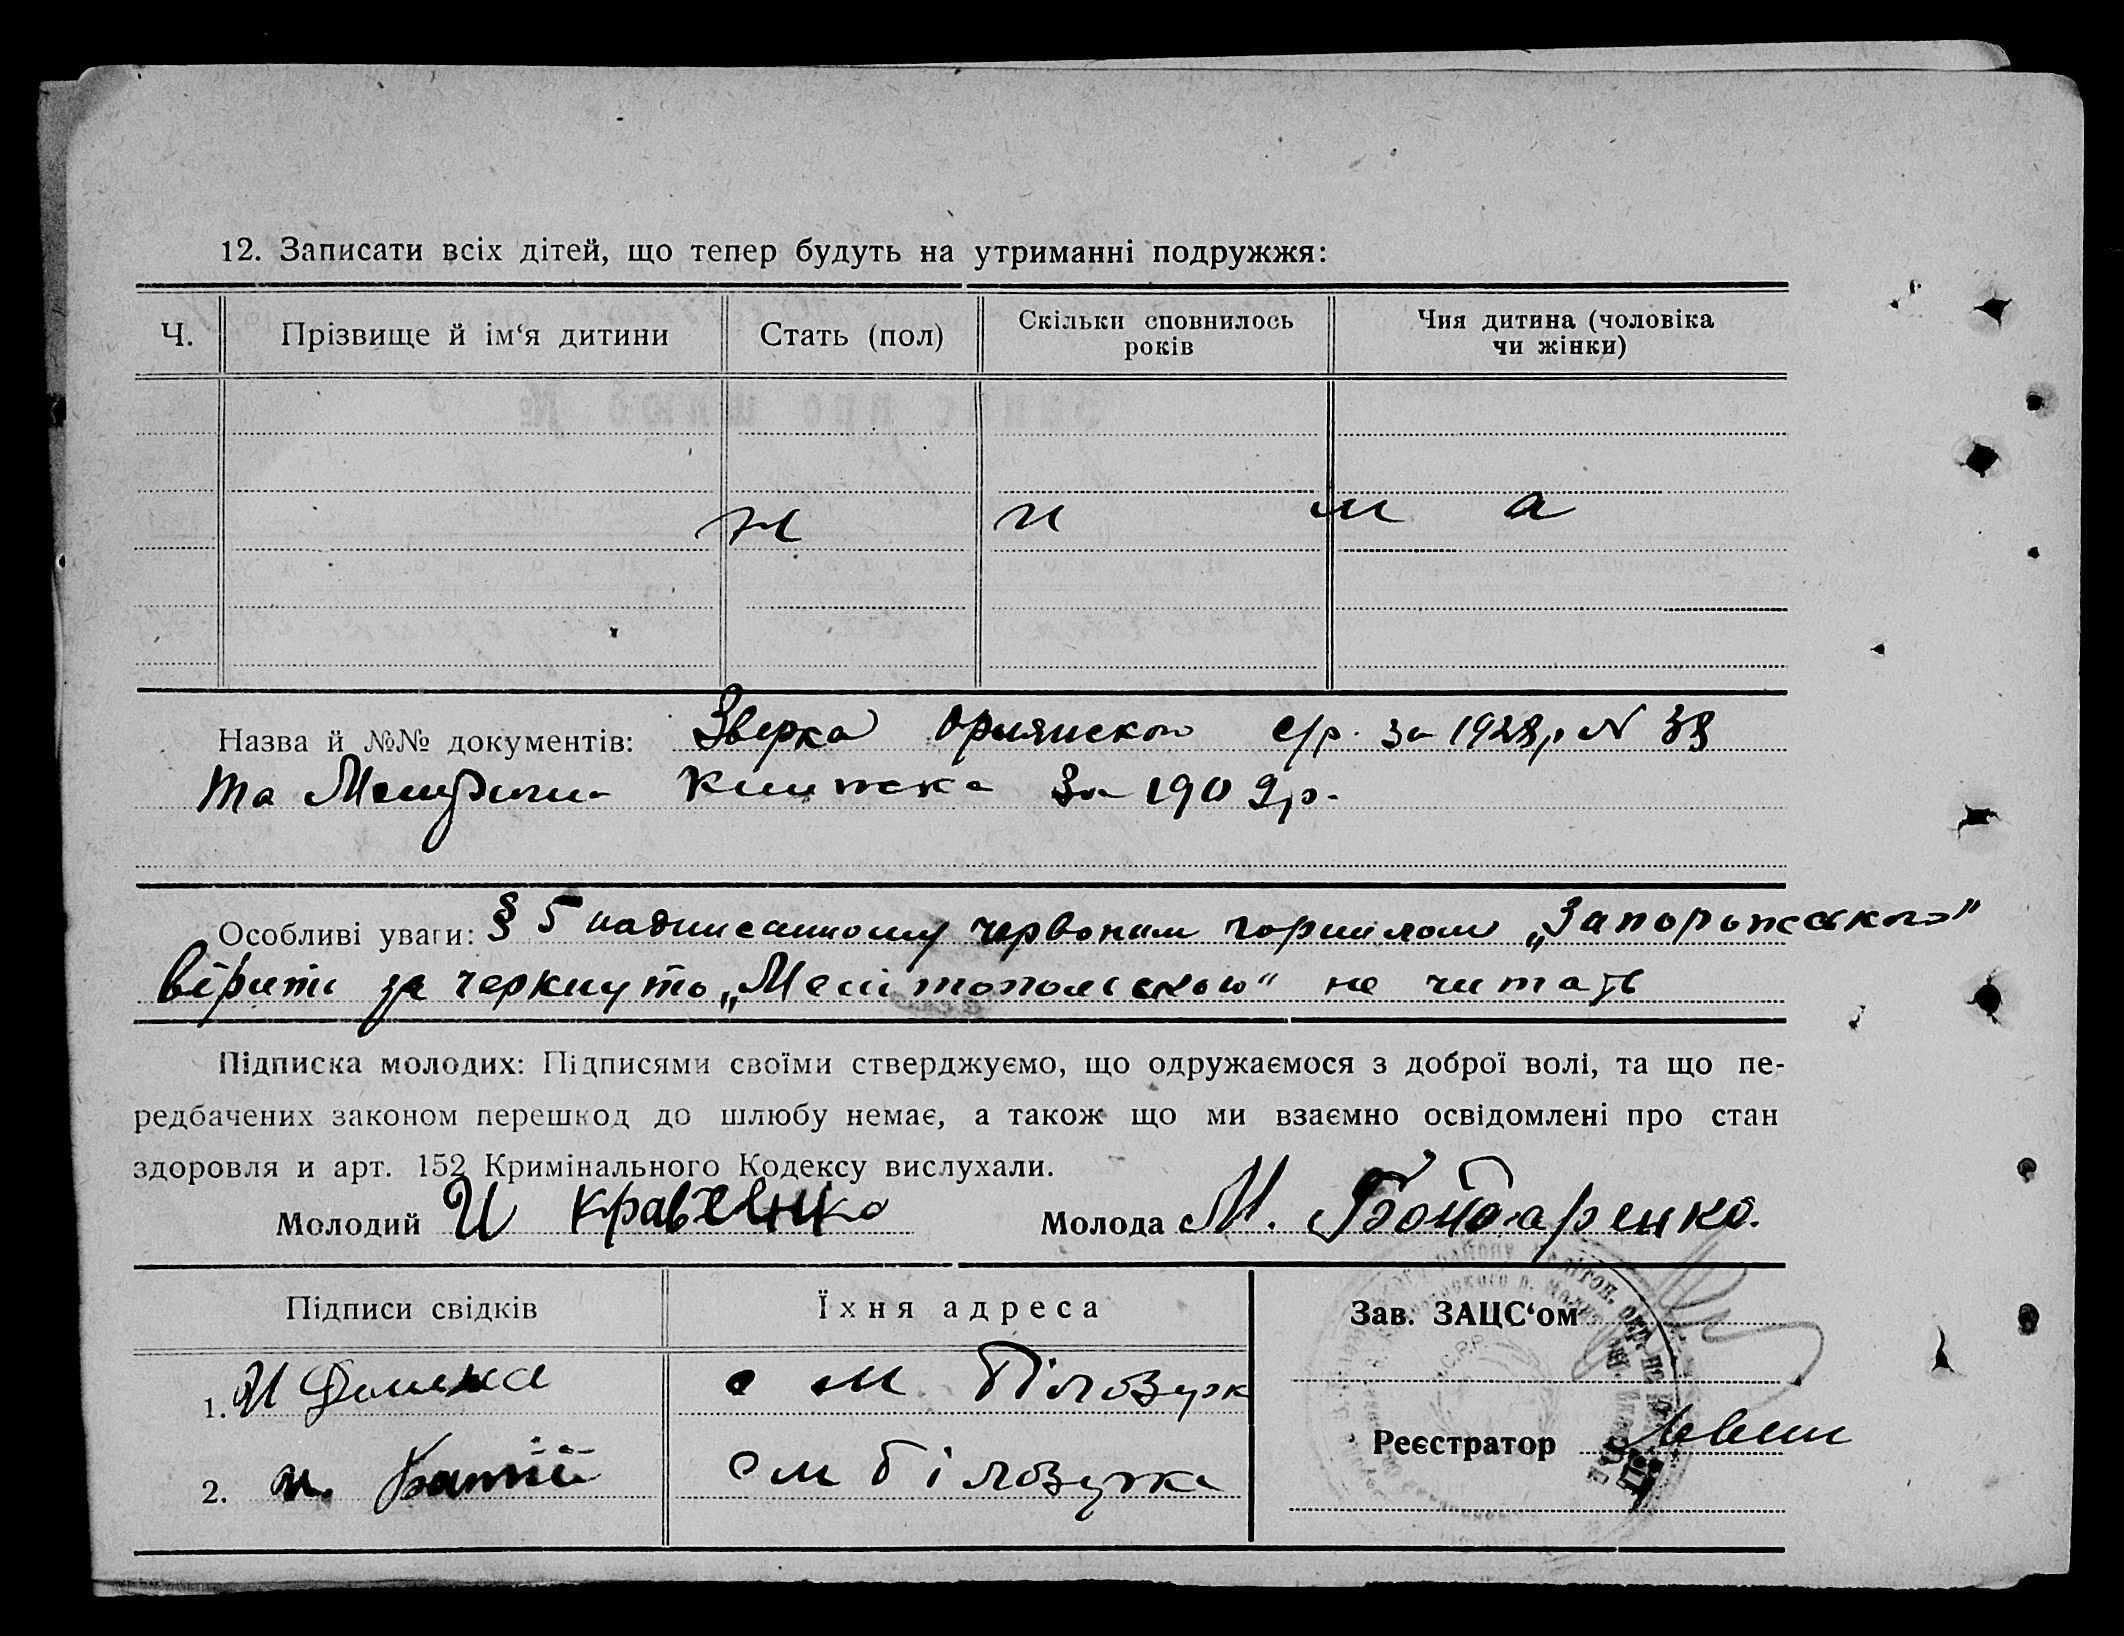 12. Записати всіх дітей, що тепер будуть на утриманні подружжя:
Ч. Прізвище й ім‘я дитини Стать (пол) Скільки сповнилось років Чия дитина (чоловіка чи жінки)
н и м а
Назва й №№ документів: с/р. за 1928р N 38
та Метрична книжка за 1909р.
Особливі уваги: § 5 надписанному червоним чорнилом „Запорожського"
вірити за черкнуто „Мелітопольською" не читать
Підписка молодих: Підписями своїми стверджуємо, що одружаємося з доброї волі, та що пе-
редбачених законом перешкод до шлюбу немає, а також що ми взаємно освідомлені про стан
здоровля и арт. 152 Кримінального Кодексу вислухали.
Молодий И Кравченко Молода М. Бондаренко.
Підписи свідків Їхня адреса Зав. ЗАЦС‘ом
1. с м Білозурк
Реєстратор
2. с м білозурка